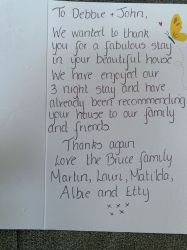 To Debbie + John,
We wanted to thank
you for a fabulous stay
in your beautiful house
We have enjoyed our
3 night stay and have
already been recommending
your house to our family
and friends
Thanks again
Love the Bruce family
Martin, Lauri, Matilda,
Albie and Etty
x x x
x x